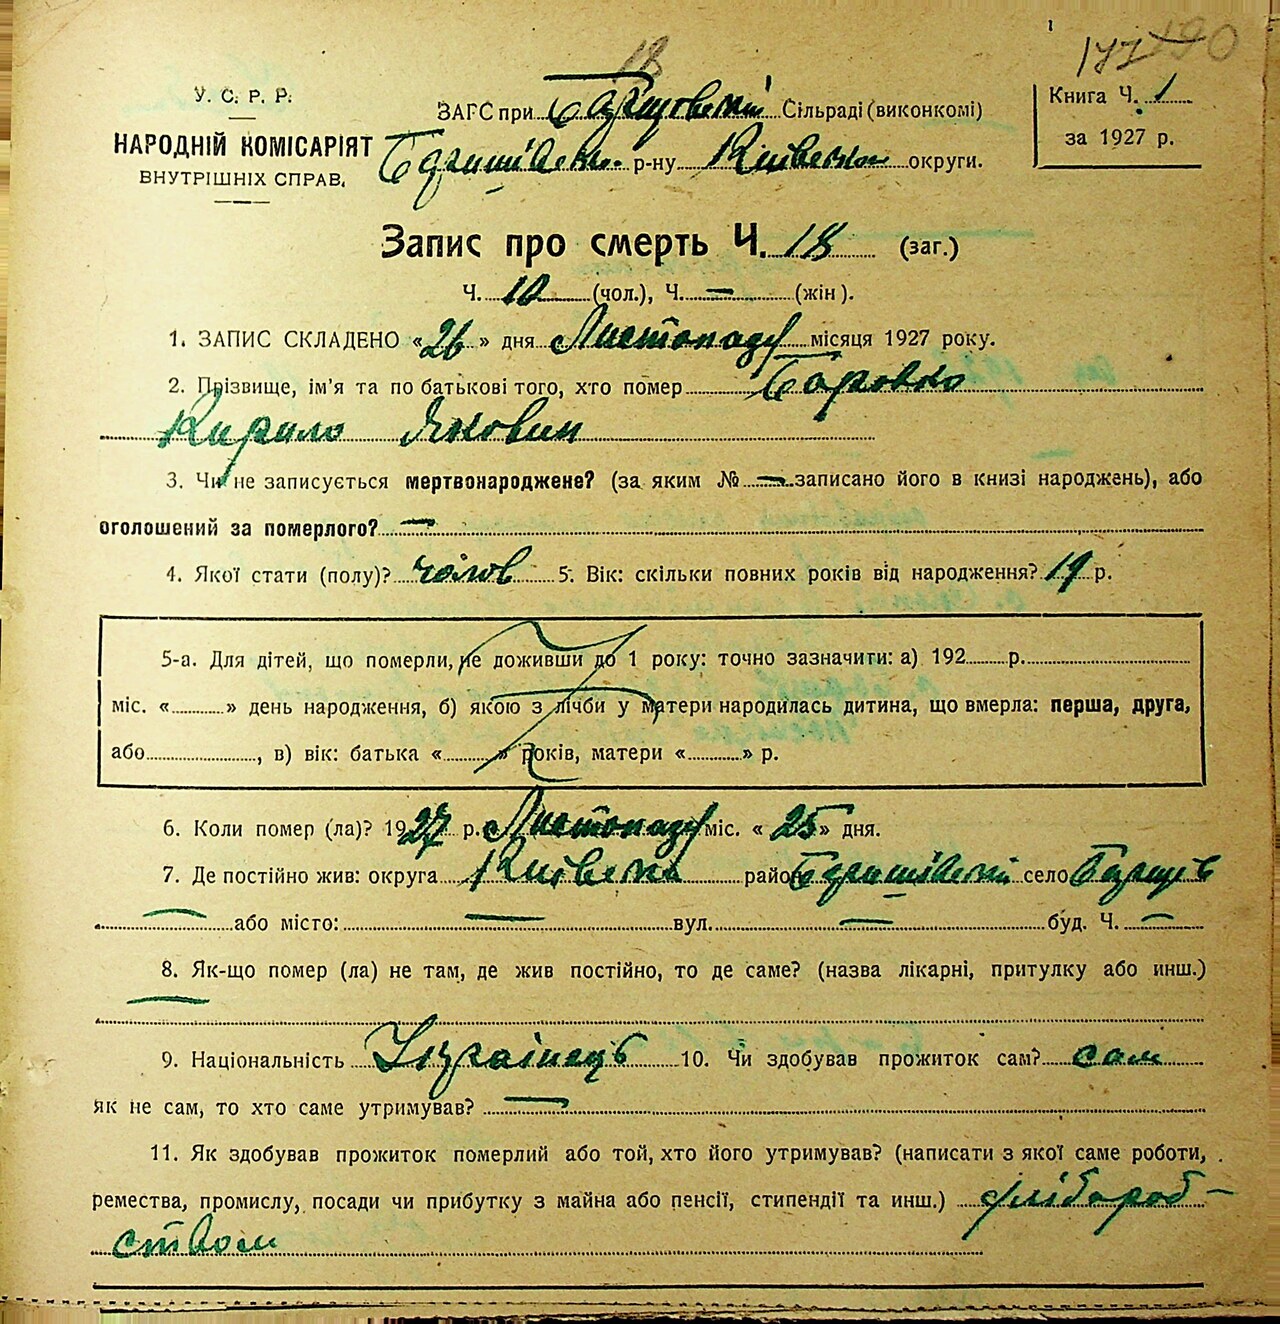 177 190
18
У. С. Р. Р.
НАРОДНІЙ КОМІСАРІЯТ
ВНУТРІШНІХ СПРАВ.
ЗАГС при Сільраді (виконкомі)
р-ну Київської округи.
Книга Ч. 1
за 1927 р.
Запис про смерть Ч. 18 (заг.)
Ч. 10 (чол.), Ч. — (жін).
1. ЗАПИС СКЛАДЕНО «26» дня Листопаду місяця 1927 року.
2. Прізвище, ім'я та по батькові того, хто помер Боровко
Кирило Якович
3. Чи не записується мертвонароджене? (за яким № — записано його в книзі народжень), або
оголошений за померлого? —
4. Якої стати (полу)? чолов 5. Вік: скільки повних років від народження? 19 р.
5-а. Для дітей, що померли, не доживши до 1 року: точно зазначити: а) 192 р.
міс. « » день народження, б) якою з лічби у матери народилась дитина, що вмерла: перша, друга,
або , в) вік: батька « » років, матери « » р.
6. Коли помер (ла)? 1927 р. Листопаду міс. «25» дня.
7. Де постійно жив: округа Київська район село
— або місто: — вул. — буд. Ч. —
8. Як-що помер (ла) не там, де жив постійно, то де саме? (назва лікарні, притулку або инш.)
—
9. Національність Українець 10. Чи здобував прожиток сам? сам
як не сам, то хто саме утримував? —
11. Як здобував прожиток померлий або той, хто його утримував? (написати з якої саме роботи,
ремества, промислу, посади чи прибутку з майна або пенсії, стипендії та инш.) хлібороб-
ством